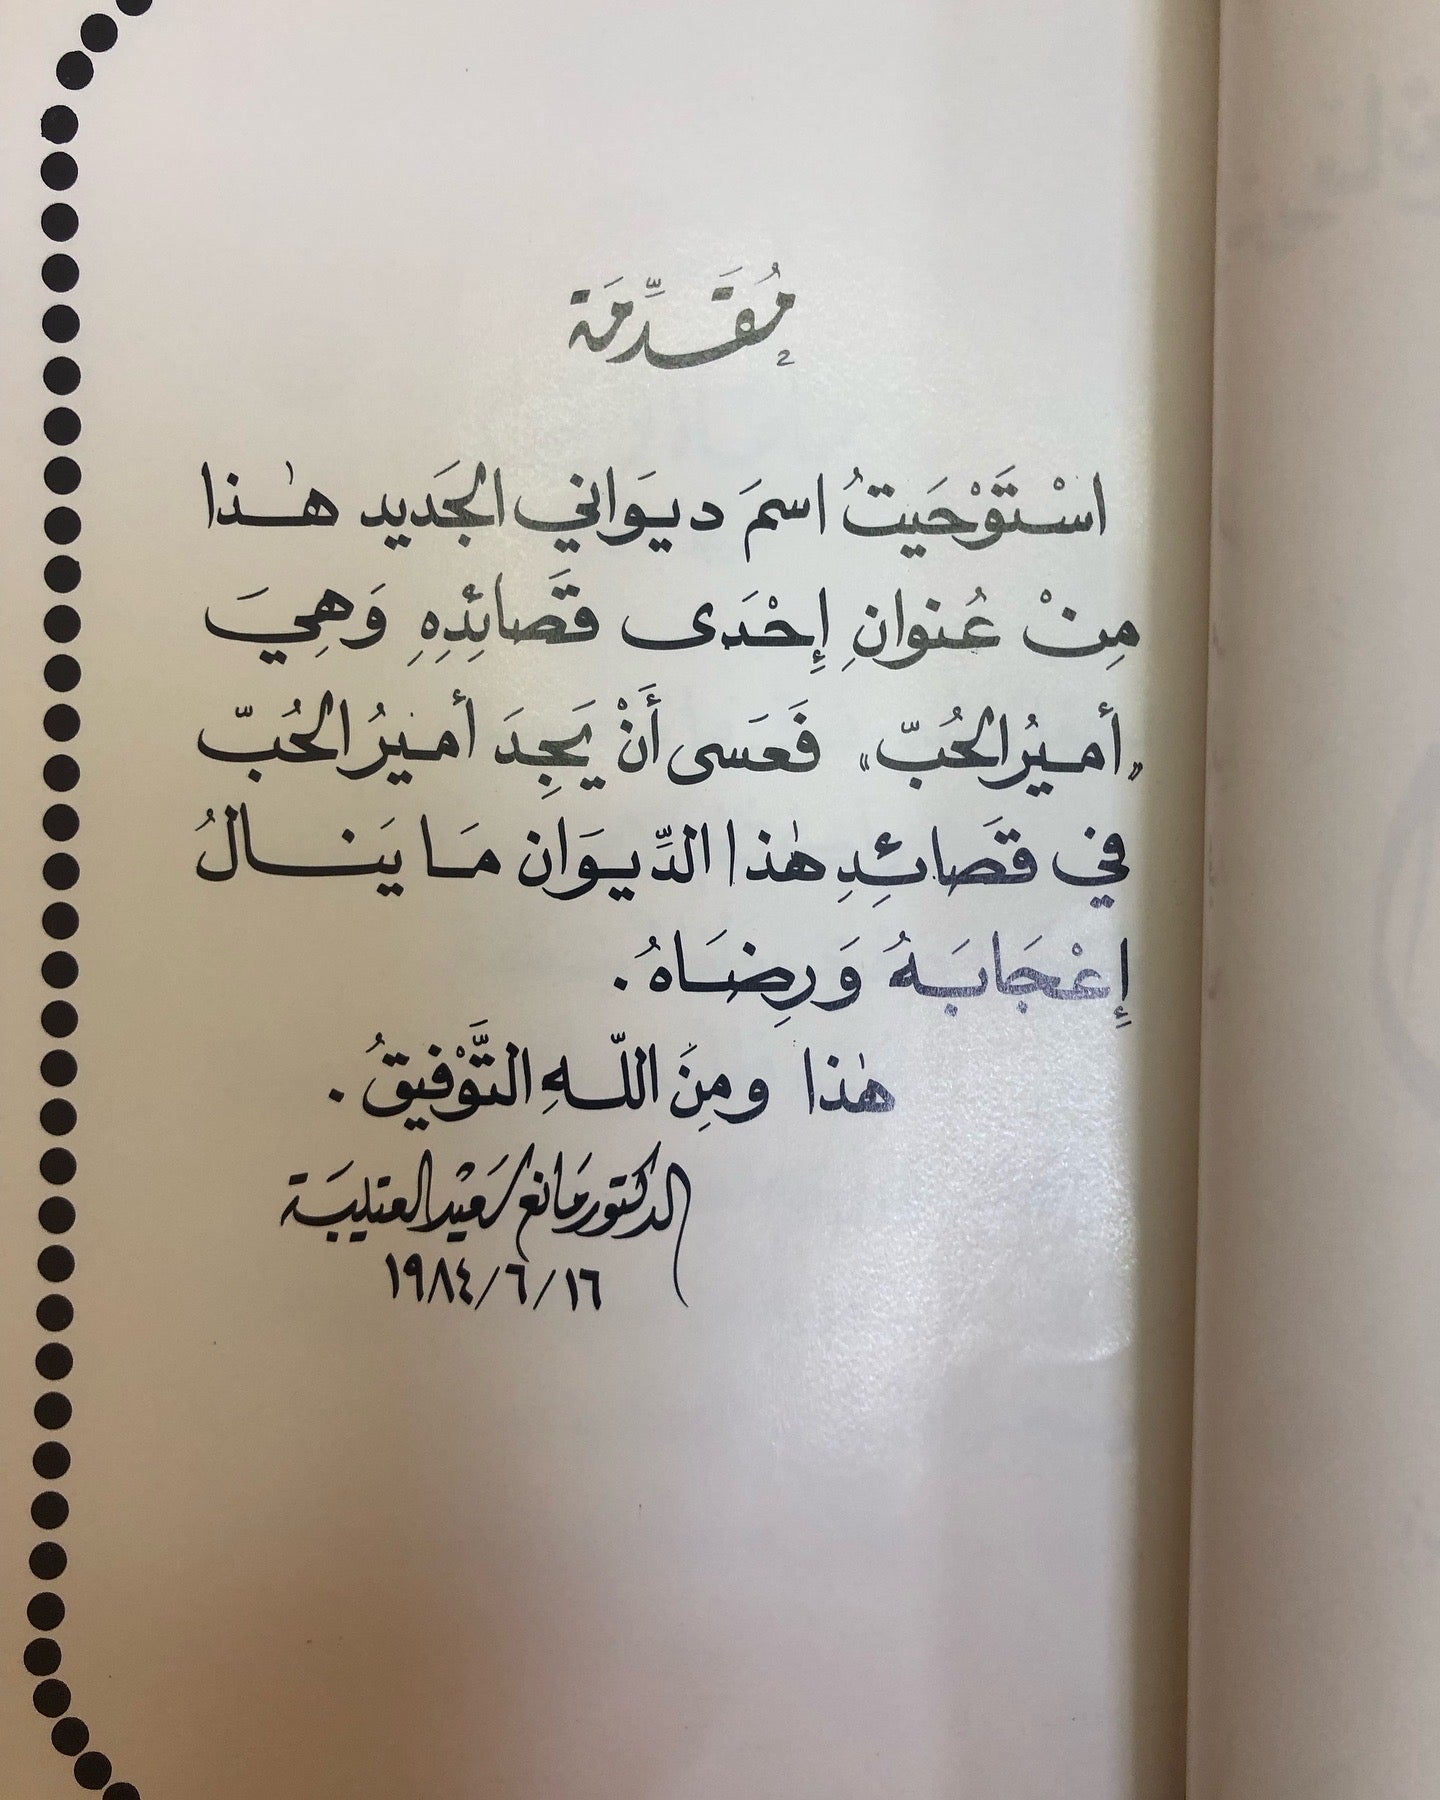 مُقَدِّمَة
اسْتَوْحَيتُ اسمَ ديوَاني الجَديد هٰذا
مِنْ عُنوانِ إِحْدَى قَصائِدِهِ وَهِيَ
«أميرُ الحُبّ» فَعَسى أَنْ يَجِدَ أميرُ الحُبّ
في قصَائِدِ هٰذا الدِّيوَان مَا يَنالُ
إِعْجَابَهُ وَرِضَاهُ.
هٰذا ومِنَ اللّهِ التَّوْفيقُ.
الدكتور مَانع سَعيْد العتيبَة
١٩٨٤/٦/١٦